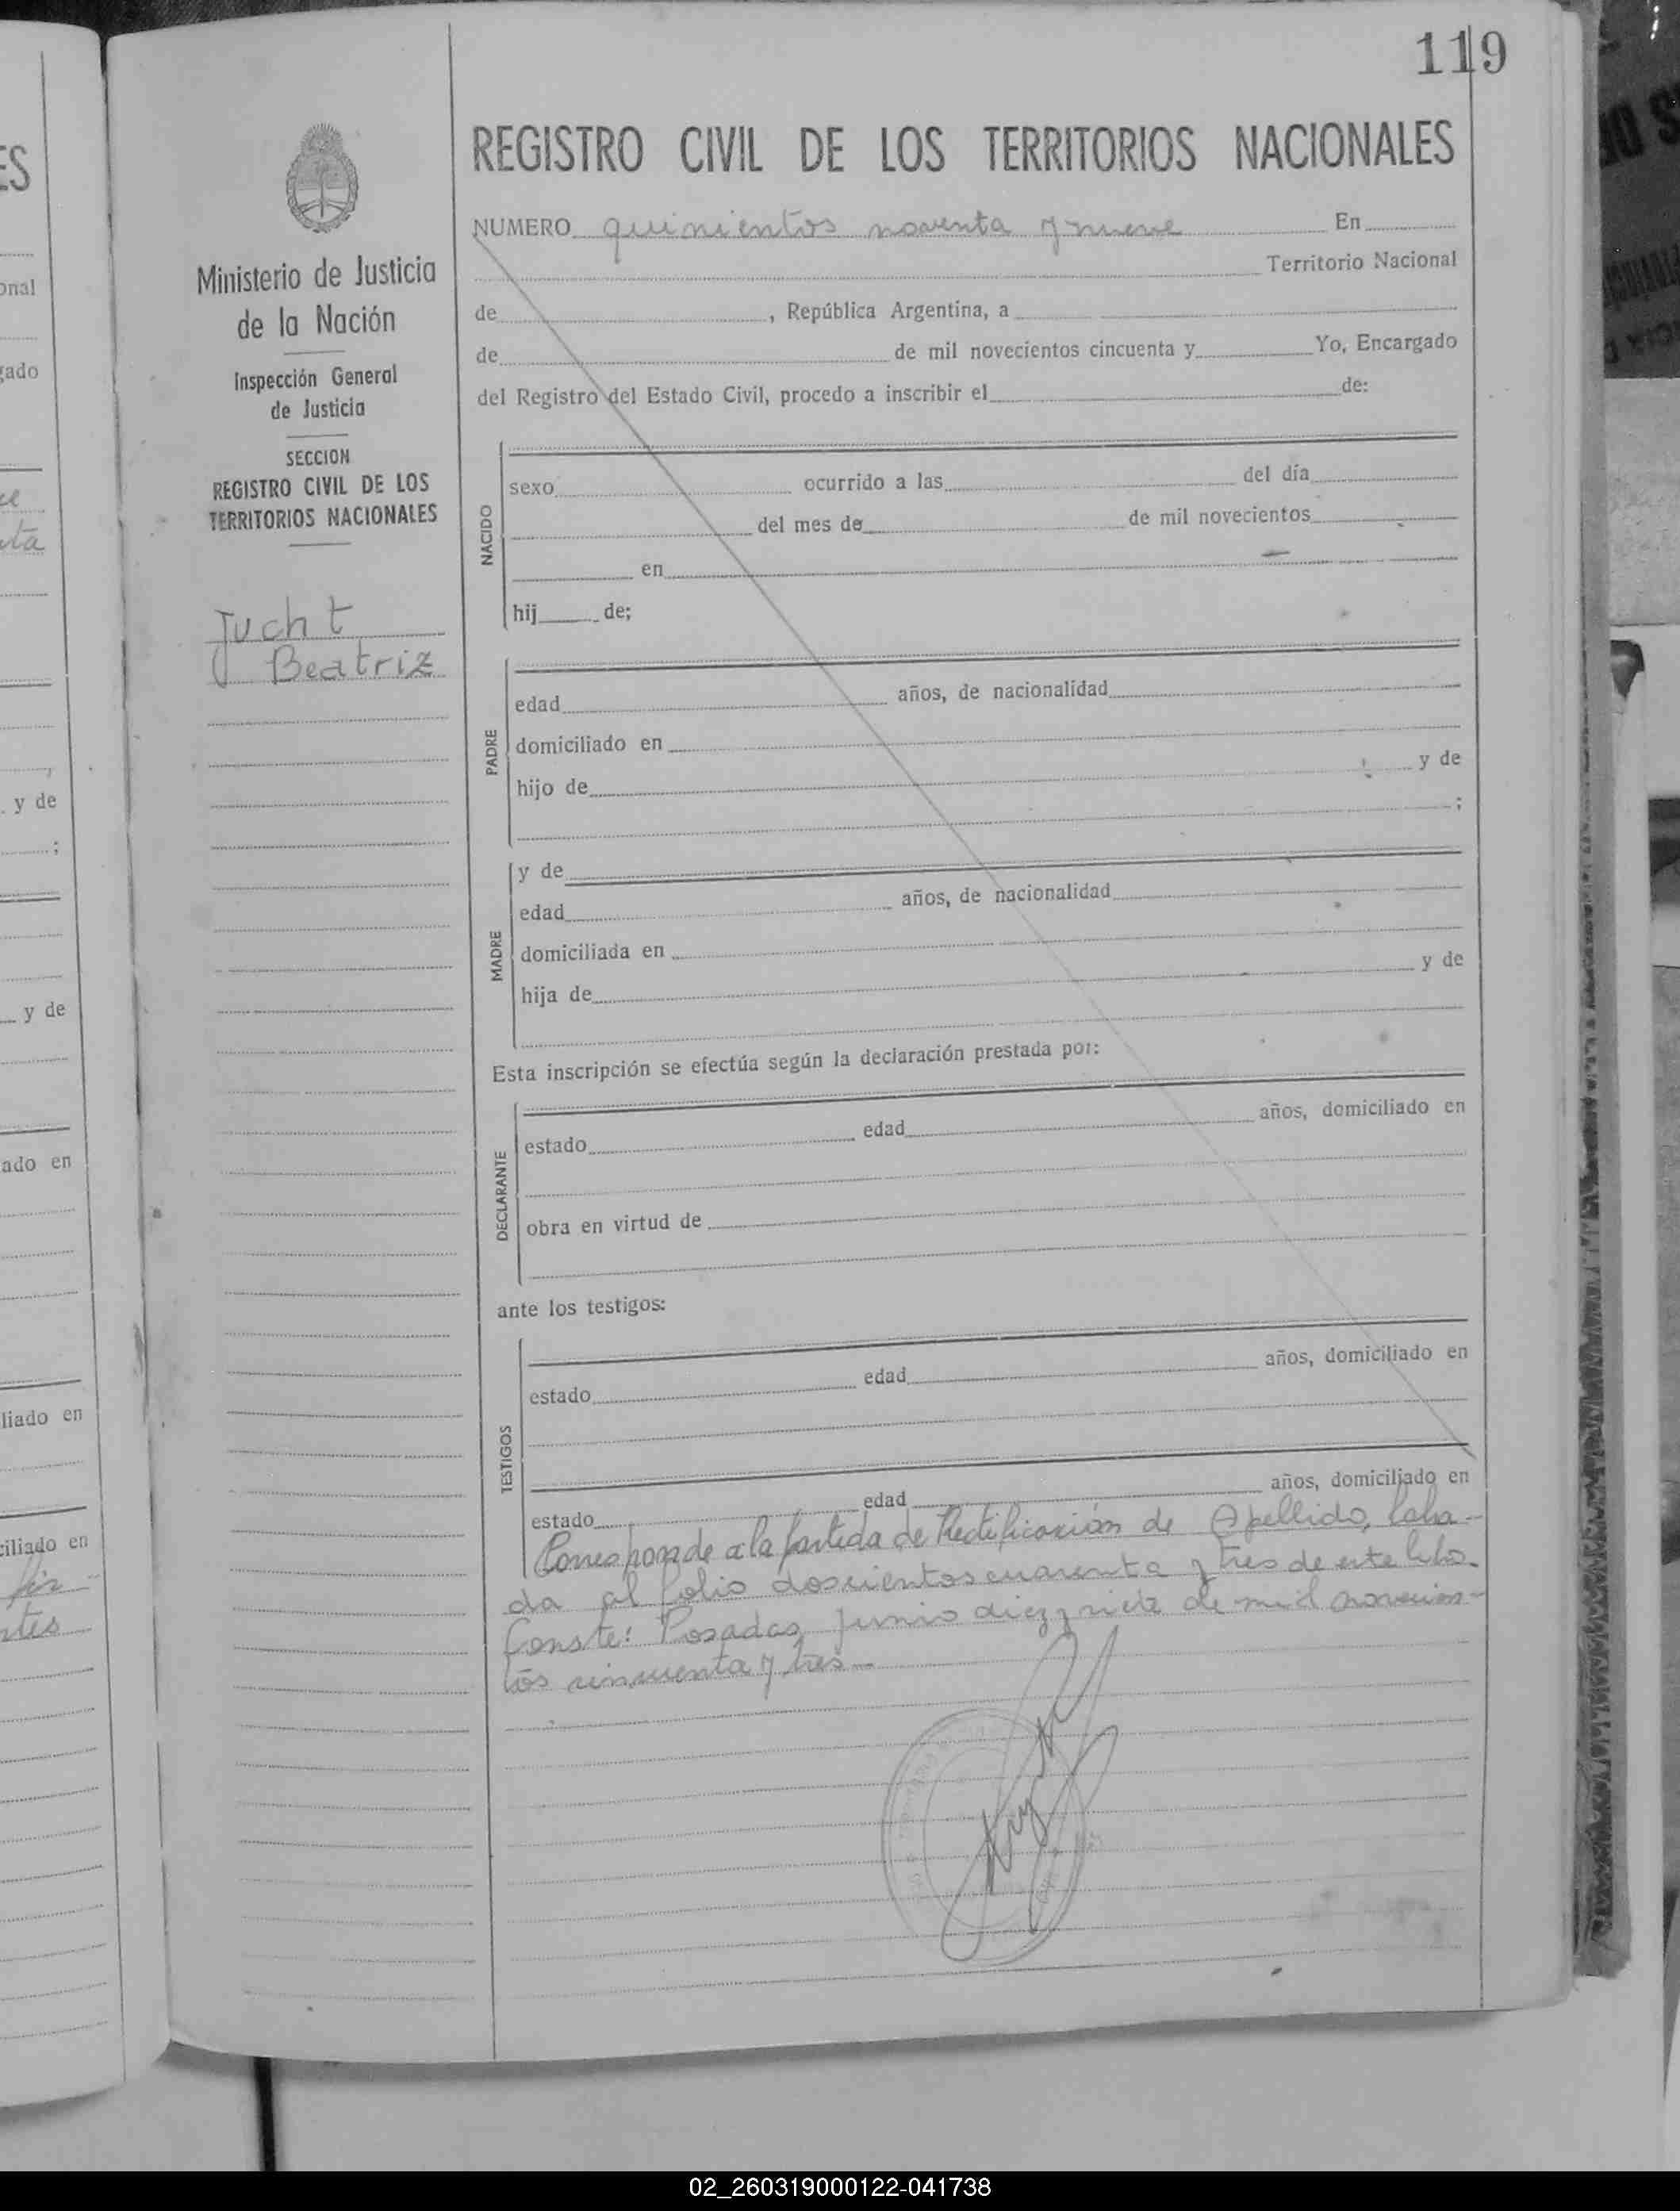 119
REGISTRO CIVIL DE LOS TERRITORIOS NACIONALES
NUMERO quinientos noventa y nueve En
Territorio Nacional
de , República Argentina, a
de de mil novecientos cincuenta y Yo, Encargado
del Registro del Estado Civil, procedo a inscribir el de:
Ministerio de Justicia
de la Nación
Inspección General
de Justicia
SECCION
REGISTRO CIVIL DE LOS
TERRITORIOS NACIONALES
Jucht
Beatriz
NACIDO
sexo ocurrido a las del día
del mes de de mil novecientos
en
hij de;
PADRE
edad años, de nacionalidad
domiciliado en
hijo de y de
;
MADRE
y de
edad años, de nacionalidad
domiciliada en
hija de y de
Esta inscripción se efectúa según la declaración prestada por:
DECLARANTE
estado edad años, domiciliado en
obra en virtud de
ante los testigos:
TESTIGOS
estado edad años, domiciliado en
estado edad años, domiciliado en
Corresponde a la partida de Rectificación de Apellido, laba-
da al folio doscientos cuarenta y tres de este libro.
Conste: Posadas, junio diez y siete de mil novecien-
tos cincuenta y tres
ES
onal
gado
y de
;
y de
ado en
liado en
ciliado en
02_260319000122-041738